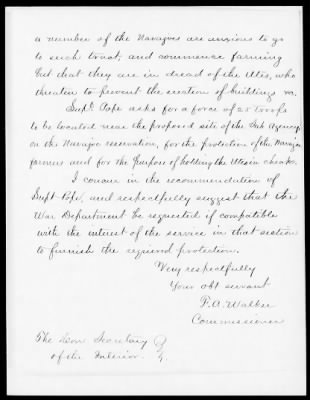 a number of the Navajoes are anxious to go
to such tract, and commence farming
but that they are in dread of the Utes, who
threaten to prevent the erection of buildings &c.
Supt. Pope asks for a force of 25 troops
to be located near the proposed site of the Sub Agency
on the Navajo reservation, for the protection of the Navajo
farmers and for the purpose of holding the Utes in check.
I concur in the recommendation of
Supt Pope, and respectfully suggest that the
War Department be requested if compatible
with the interest of the service in that section
to furnish the required protection.
Very respectfully
Your obt servant
F. A. Walker
Commissioner
The Hon Secretary
of the Interior